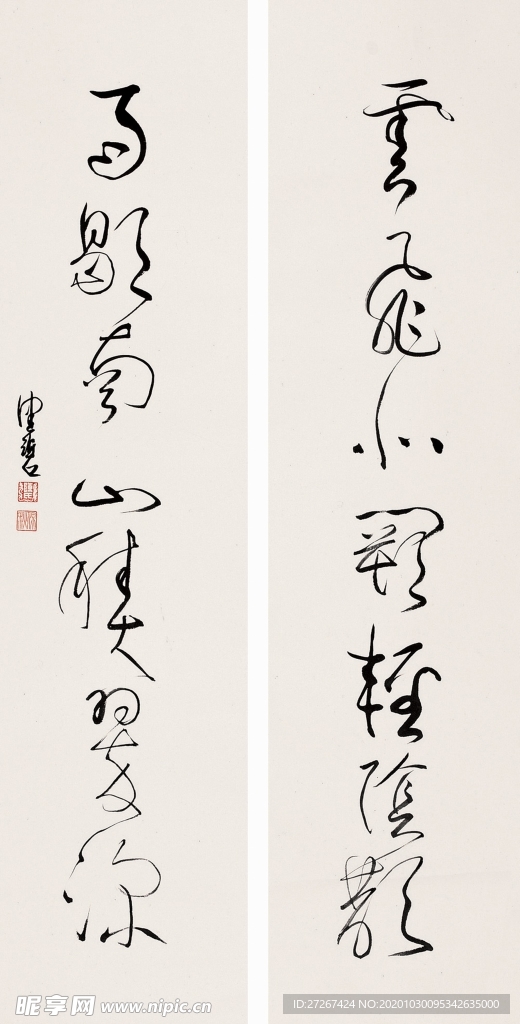 雲飛北闕輕陰散
雨歇南山積翠深
健碧
昵享网 www.nipic.cn
ID:27267424 NO:20201030095342635000